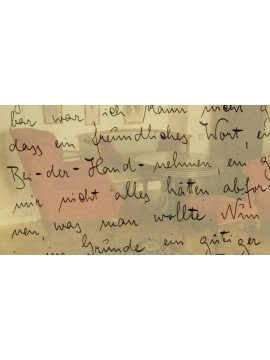 bar war ich kann nicht g
dass ein freundliches Wort, ein
Bei-der-Hand-nehmen, ein g
mir nicht alles hätten abfor
nen, was man wollte. Nun
im Grunde ein gütiger